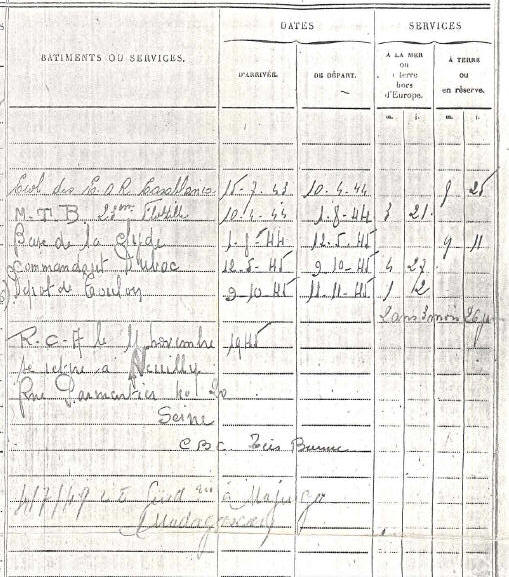 DATES
SERVICES
BATIMENTS OU SERVICES.
D'ARRIVÉE.
DE DÉPART.
A LA MER
ou
à terre
hors
d'Europe.
À TERRE
ou
en réserve.
m. j. m. j.
des Casablanca 15-7-43 10-4-44 8 25
M.T.B. 23eme Flotille 10-4-44 1-8-44 3 21
Base de la 1-8-44 12-5-45 9 11
Commandant 12-5-45 9-10-45 4 27
Dépot de Toulon 9-10-45 11-11-45 1 2
2 ans 3 mois 26
R.C.A le 11 novembre 1945
se retire a Neuilly
Rue Parmentier no 20
Seine
à Majunga
Madagascar